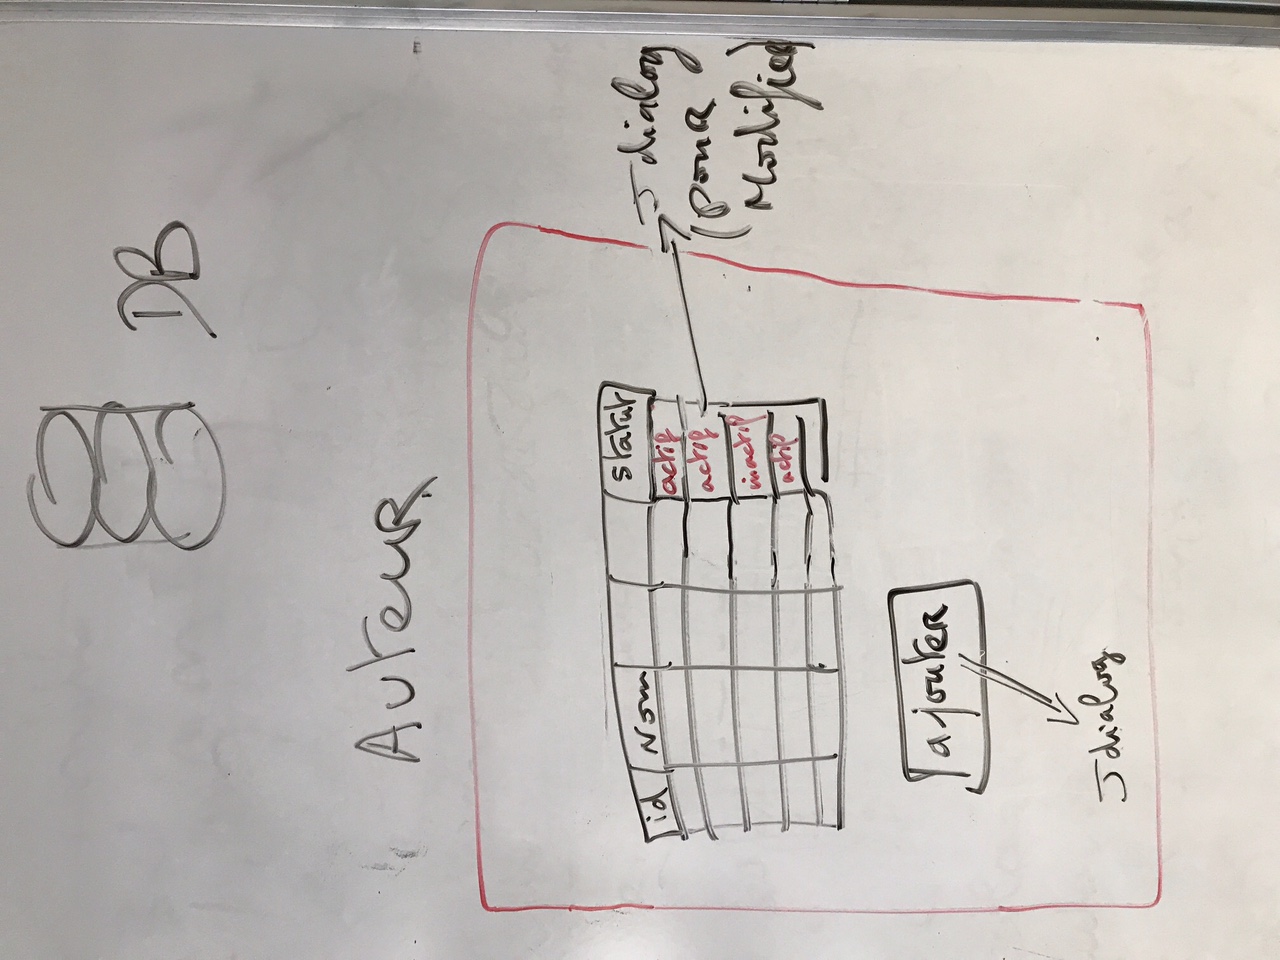 DB
Auteur
id Nom statut
actif
actif
inactif
actif
Jdialog
(pour
Modifier)
ajouter
Jdialog